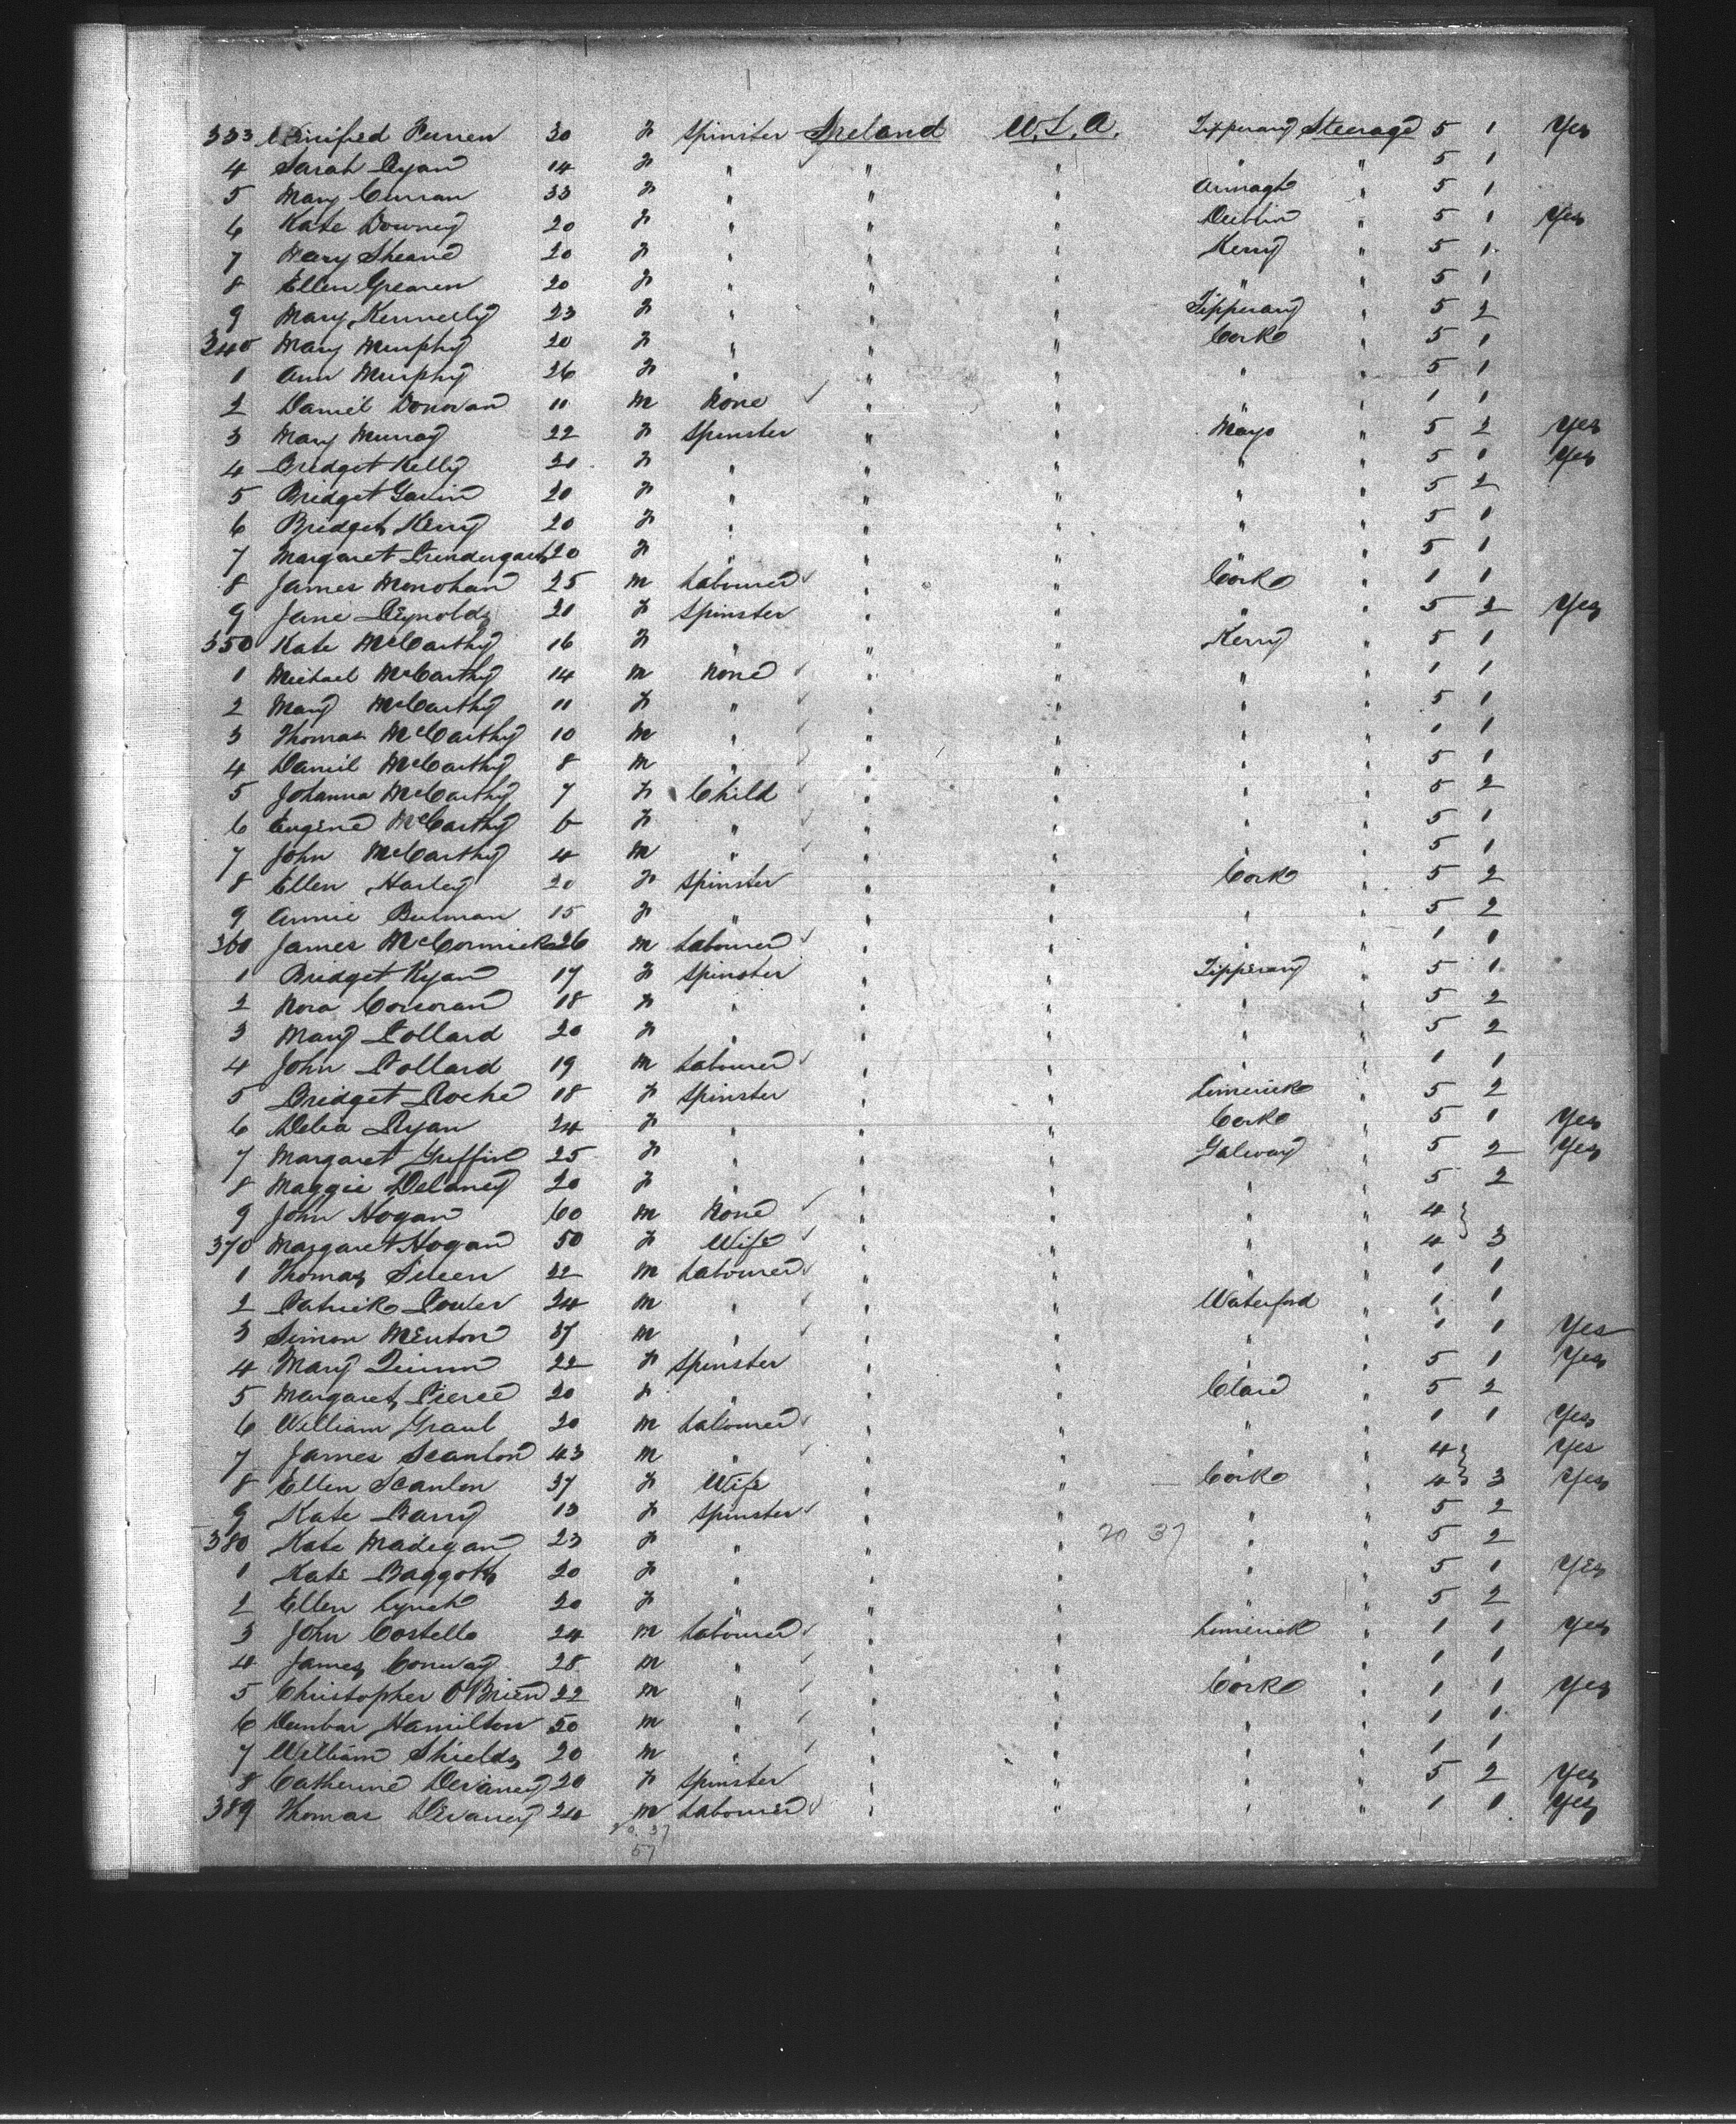 333 Winifred 30 F Spinster Ireland U.S.A. Tipperary Steerage 5 1 Yes
4 Sarah Ryan 14 F " " " " " 5 1
5 Mary Curran 33 F " " " Armagh " 5 1
6 Kate Downey 20 F " " " Dublin " 5 1 Yes
7 Mary Sheane 20 F " " " Kerry " 5 1
8 Ellen 20 F " " " " " 5 1
9 Mary Kennelly 23 F " " " Tipperary " 5 2
340 Mary Murphy 20 F " " " Cork " 5 1
1 Ann Murphy 26 F " " " " " 5 1
2 Daniel Donovan 11 M None ✓ " " " " 1 1
3 Mary Murray 22 F Spinster " " Mayo " 5 2 Yes
4 Bridget Kelly 20 F " " " " " 5 1 Yes
5 Bridget Gavin 20 F " " " " " 5 2
6 Bridget Kerry 20 F " " " " " 5 1
7 Margaret Prendergast 20 F " " " " " 5 1
8 James Monohan 25 M Labourer ✓ " " Cork " 1 1
9 Jane Reynolds 20 F Spinster " " " " 5 2 Yes
350 Kate McCarthy 16 F " " " Kerry " 5 1
1 Michael McCarthy 14 M None ✓ " " " " 1 1
2 Mary McCarthy 11 F " ✓ " " " " 5 1
3 Thomas McCarthy 10 M " ✓ " " " " 1 1
4 Daniel McCarthy 8 M " ✓ " " " " 5 1
5 Johanna McCarthy 7 F Child ✓ " " " " 5 2
6 Eugene McCarthy 6 F " ✓ " " " " 5 1
7 John McCarthy 4 M " ✓ " " " " 5 1
8 Ellen Harley 20 F Spinster " " Cork " 5 2
9 Annie 15 F " " " " " 5 2
360 James McCormick 26 M Labourer ✓ " " " " 1 1
1 Bridget Ryan 17 F Spinster " " Tipperary " 5 1
2 Nora Corcoran 18 F " " " " " 5 2
3 Mary Pollard 20 F " " " " " 5 2
4 John Pollard 19 M Labourer ✓ " " " " 1 1
5 Bridget Roche 18 F Spinster " " Limerick " 5 2
6 Delia Ryan 24 F " " " Cork " 5 1 Yes
7 Margaret Griffin 25 F " " " Galway " 5 2 Yes
8 Maggie Delaney 20 F " " " " " 5 2
9 John Hogan 60 M None ✓ " " " " 4 }
370 Margaret Hogan 50 F Wife ✓ " " " " 4 } 3
1 Thomas 22 M Labourer ✓ " " " " 1 1
2 Patrick Power 24 M " ✓ " " Waterford " 1 1
3 Simon Menton 37 M " ✓ " " " " 1 1 Yes
4 Mary Quinn 22 F Spinster " " " " 5 1 Yes
5 Margaret Pierce 20 F " " " Clare " 5 2
6 William Grant 20 M Labourer ✓ " " " " 1 1 Yes
7 James Scanlon 43 M " ✓ " " " " 4 } Yes
8 Ellen Scanlon 37 F Wife " " Cork " 4 } 3 Yes
9 Kate Barry 13 F Spinster ✓ " " " " 5 2
380 Kate Madigan 23 F " " " 20 37 " " 5 2
1 Kate Baggott 20 F " " " " " 5 1 Yes
2 Ellen Lynch 20 F " " " " " 5 2
3 John Costello 24 M Labourer ✓ " " Limerick " 1 1 Yes
4 James Conway 28 M " ✓ " " " " 1 1
5 Christopher O'Brien 22 M " ✓ " " Cork " 1 1 Yes
6 Dunbar Hamilton 50 M " ✓ " " " " 1 1
7 William Shields 20 M " ✓ " " " " 1 1
8 Catherine Devaney 20 F Spinster " " " " 5 2 Yes
389 Thomas Devaney 24 M Labourer ✓ " " " " 1 1 Yes
20 37
57